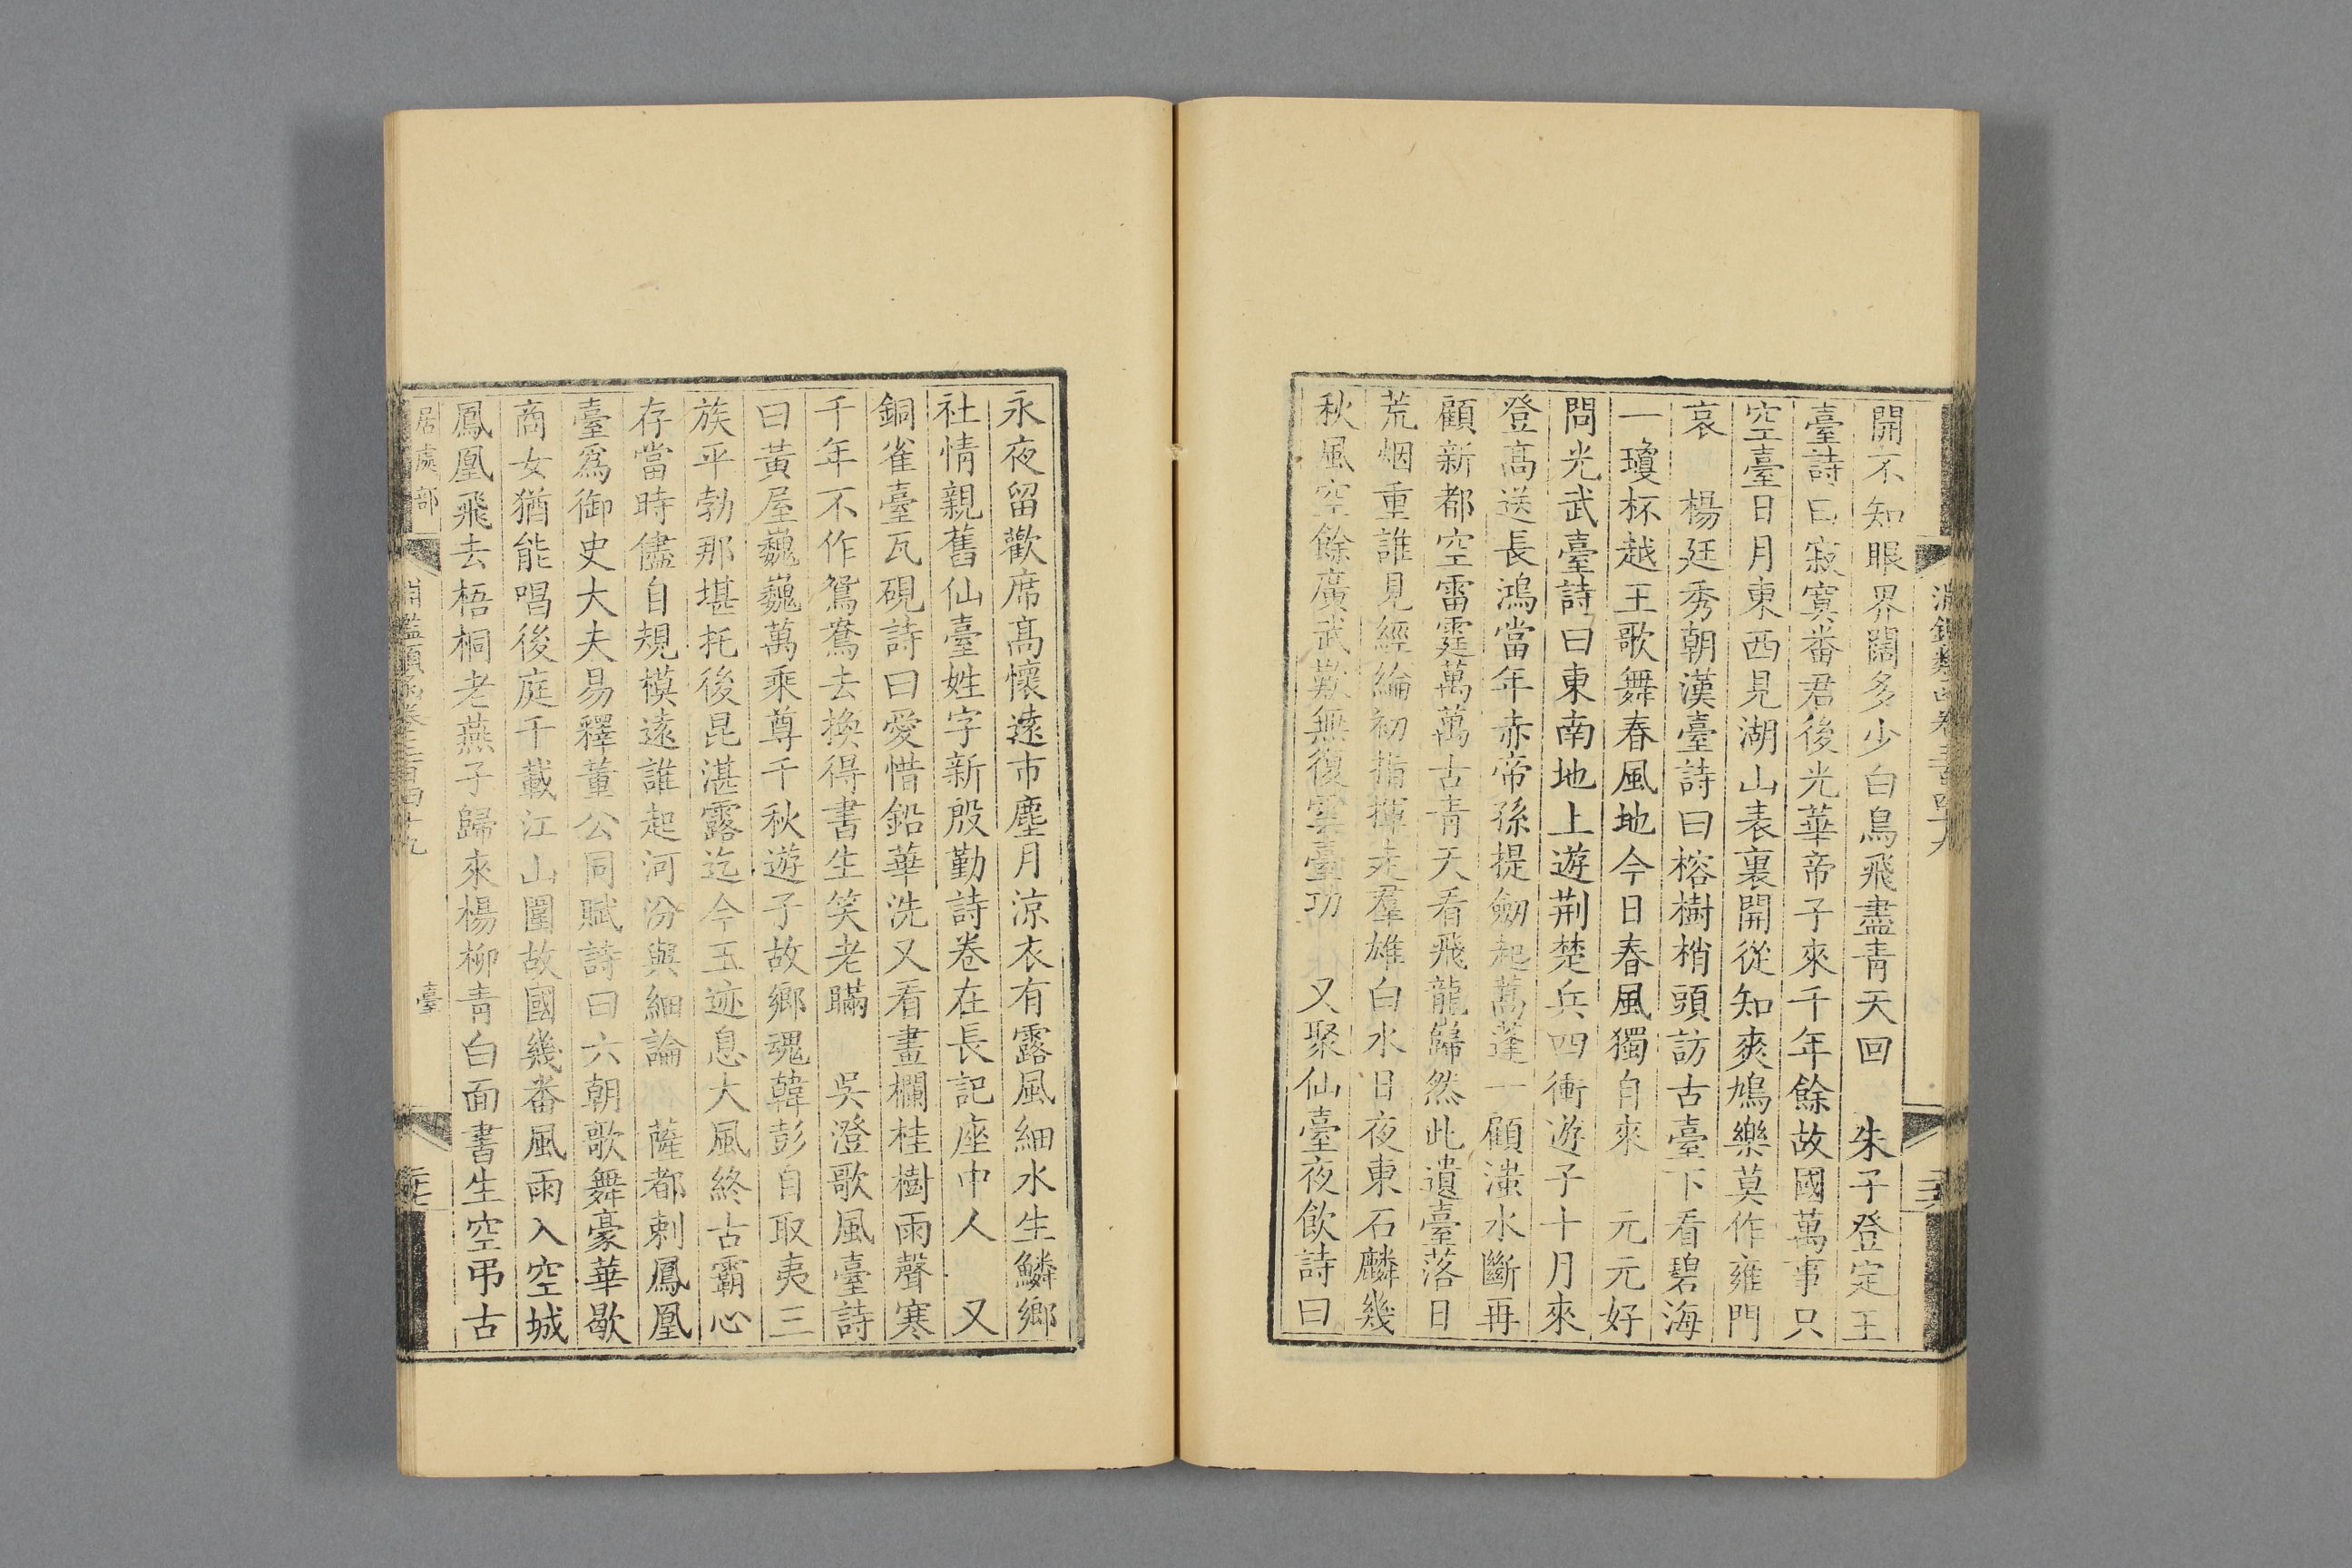 開不知眼界闊多少白鳥飛盡青天回　朱子登定王
臺詩曰寂寞番君後光華帝子來千年餘故國萬事只
空臺日月東西見湖山表裏開從知爽鳩樂莫作雍門
哀　楊廷秀朝漢臺詩曰榕樹梢頭訪古臺下看碧海
一瓊杯越王歌舞春風地今日春風獨自來　元元好
問光武臺詩曰東南地上遊荆楚兵四衝遊子十月來
登高送長鴻當年赤帝孫提劒起蒿蓬一顧滍水斷再
顧新都空雷霆萬萬古青天看飛龍巋然此遺臺落日
荒烟重誰見經綸初指揮走羣雄白水日夜東石麟幾
秋風空餘廣武歎無復雲臺功　又聚仙臺夜飲詩曰
永夜留歡席高懷遠市塵月涼衣有露風細水生鱗鄉
社情親舊仙臺姓字新殷勤詩卷在長記座中人　又
銅雀臺瓦硯詩曰愛惜鉛華洗又看畫欄桂樹雨聲寒
千年不作鴛鴦去換得書生笑老瞞　吳澄歌風臺詩
曰黃屋巍巍萬乘尊千秋遊子故鄉魂韓彭自取夷三
族平勃那堪托後昆湛露迄今玉迹息大風終古霸心
存當時儘自規模遠誰起河汾與細論　薩都剌鳳凰
臺爲御史大夫易釋董公同賦詩曰六朝歌舞豪華歇
商女猶能唱後庭千載江山圍故國幾番風雨入空城
鳳凰飛去梧桐老燕子歸來楊柳青白面書生空弔古
居處部
淵鑑類函卷三百四十九
臺